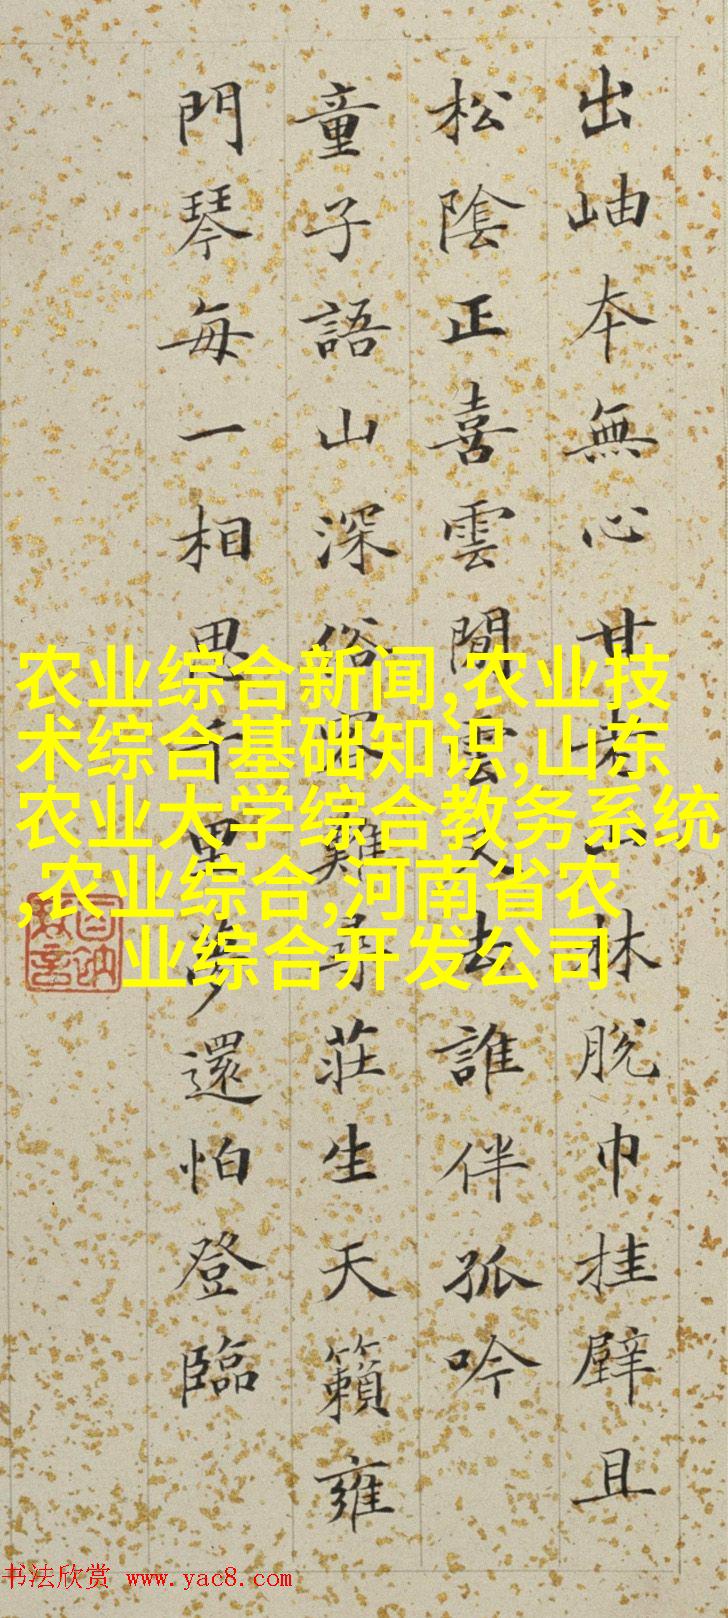 出岫本無心甘老山林脫巾挂壁且
松陰正喜雲閒雲又去誰伴孤吟
童子語山深俗客難尋莊生天籟雍
門琴每一相思千里夢還怕登臨
农业综合新闻,农业技
术综合基础知识,山东
农业大学综合教务系统
,农业综合,河南省农
业综合开发公司
书法欣赏 www.yac8.com